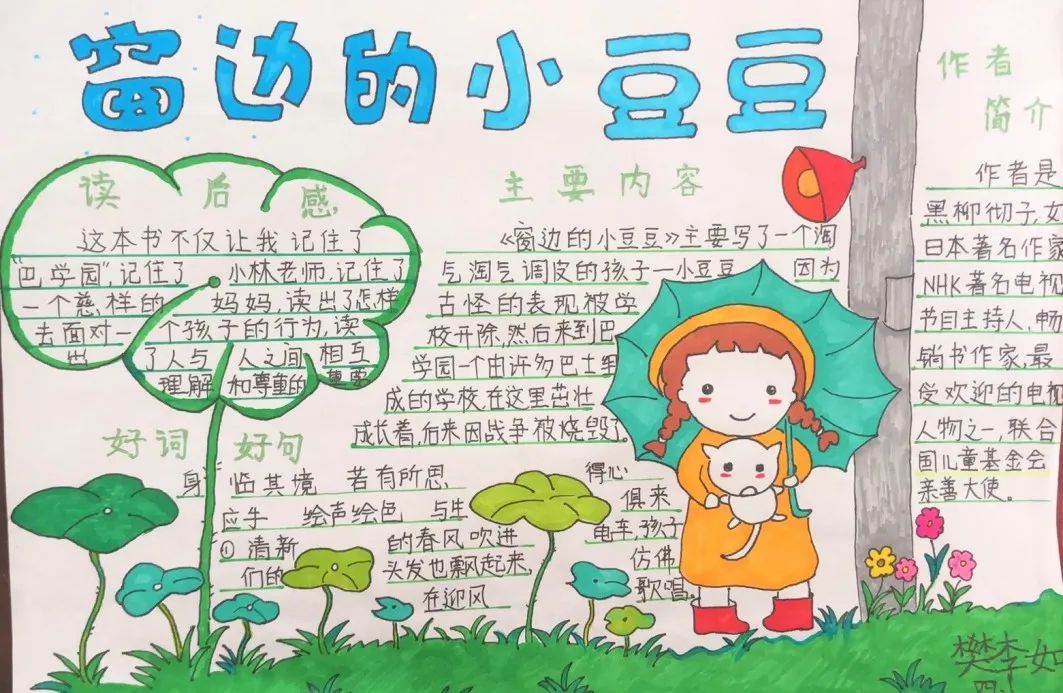 窗边的小豆豆
读后感
这本书不仅让我记住了
"巴学园",记住了 小林老师,记住了
一个慈祥的 妈妈,读出了怎样
去面对一个孩子的行为,读
出 了人与人之间相互
理解和尊重的重要
主要内容
《窗边的小豆豆》主要写了一个淘
气淘气调皮的孩子—小豆豆 因为
古怪的表现被学
校开除,然后来到巴
学园一个由许多巴士组
成的学校在这里茁壮
成长着,后来因战争被烧毁了。
好词好句
身临其境 若有所思 得心
应手 绘声绘色 与生俱来
①清新的春风吹进电车,孩子
们的头发也飘起来,仿佛
在迎风歌唱。
作者
简介
作者是
黑柳彻子,女
日本著名作家
NHK著名电视
节目主持人,畅
销书作家,最
受欢迎的电视
人物之一,联合
国儿童基金会
亲善大使。
樊李
四